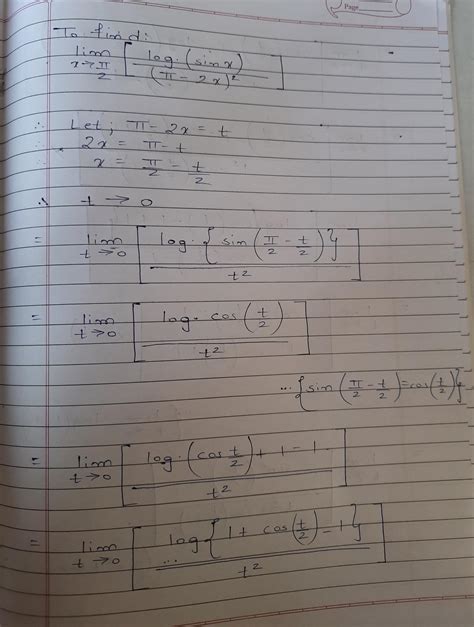 Page
To find:
lim x→π/2 [ log. (sin x) / (π - 2x)² ]
∴ Let; π - 2x = t
2x = π - t
x = π/2 - t/2
∴ t → 0
= lim t→0 [ log. { sin (π/2 - t/2) } / t² ]
= lim t→0 [ log. cos (t/2) / t² ]
... { sin (π/2 - t/2) = cos (t/2) }
= lim t→0 [ log. (cos t/2) + 1 - 1 / t² ]
= lim t→0 [ log { 1 + cos (t/2) - 1 } ... / t² ]